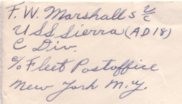 F. W. Marshall S 2/c
U.S.S. Sierra (AD18)
C Div.
c/o Fleet Postoffice
New York N.Y.